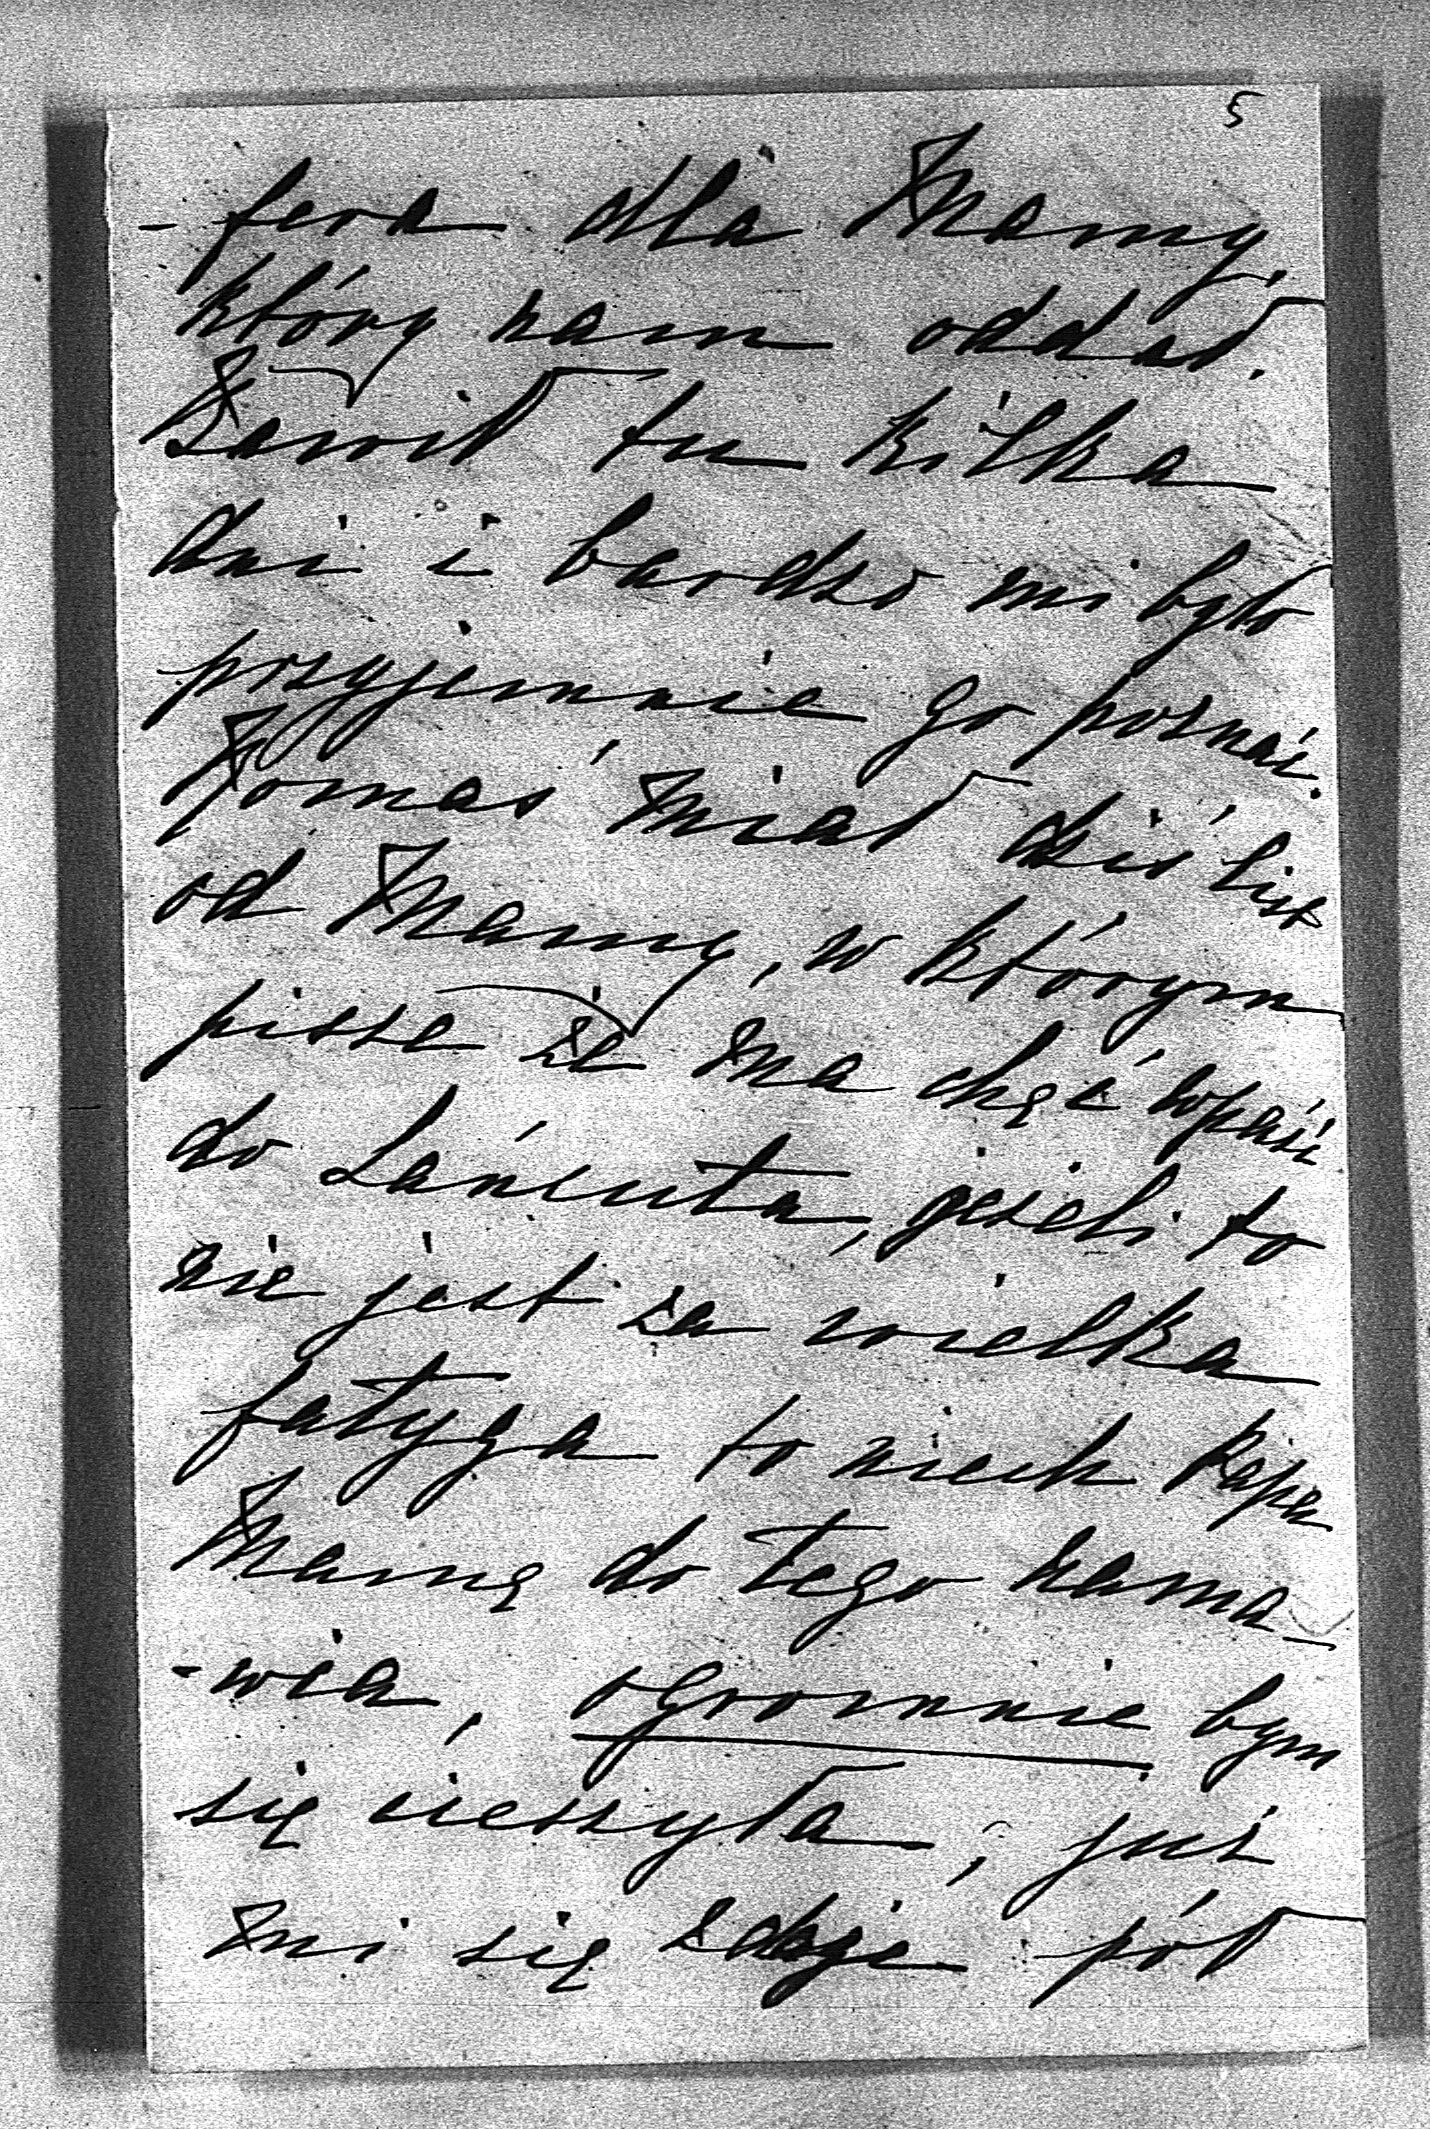 5
- fera dla Mamy,
który nam oddał.
Bawił tu kilka
dni i bardzo mi było
przyjemnie go poznać.
Tomaś miał dziś list
od Mamy, w którym
pisze że ma chęć wpaść
do Łańcuta, jeżeli to
nie jest za wielka
fatyga to niech Papa
Mamę do tego nama-
-wia, ogromnie bym
się cieszyła, już
mi się zdaje pół